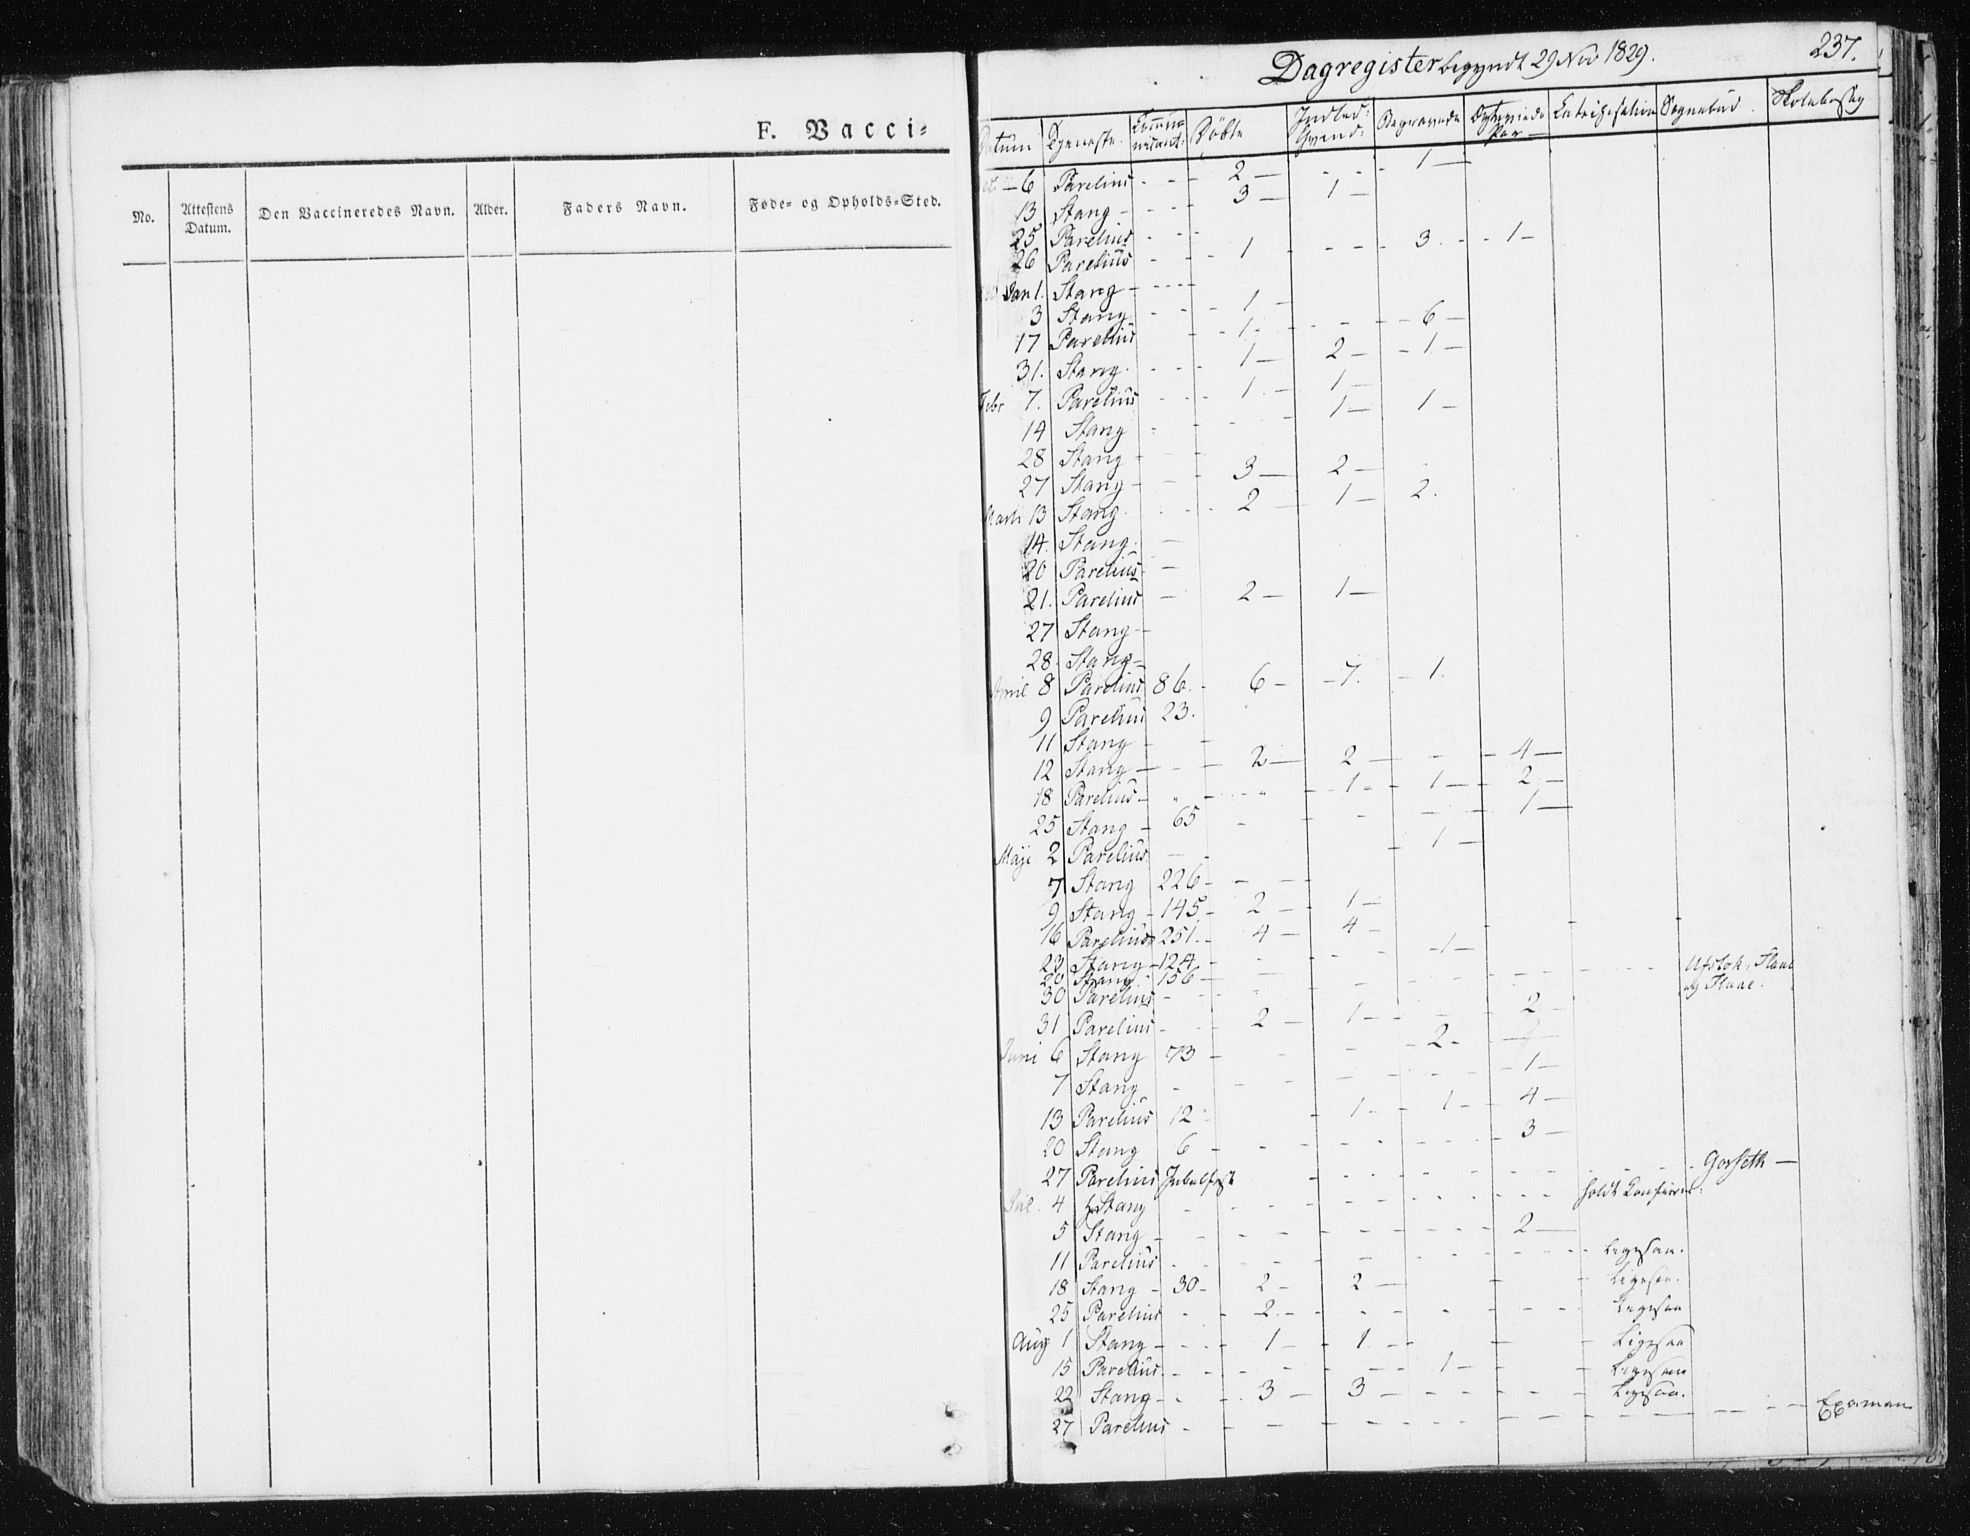 F. Vacci=
No. Attestens Datum. Den Vaccineredes Navn. Alder. Faders Navn. Føde- og Opholds-Sted.
237.
Dagregister begyndt 29 Nov 1829.
Datum Tjeneste Döbte Begravede Sognebud Skolebesøg
6 Parelius - - - 2 - - - - 1 -
13 Stang - - - - 3 - 1 -
25 Parelius - - -
26 Parelius - - - 1 - - - - 3 - - 1 -
Jan 1. Stang - - - - -
3 Stang - - - 1 -
17 Parelius - - 1 - - - - - 6 -
31. Stang - - - 1 - 2 - - 1 -
Febr 7. Parelius - - - 1 - 1 -
14 Stang - - - - - 1 - 1 -
28 Stang - - -
27 Stang - - - 3 - 2 -
Marts 13 Stang - - - 2 - 1 - 2.
14. Stang -
20 Parelius -
21. Parelius - 2 - 1 -
27 Stang -
28. Stang -
April 8 Parelius 86. - 6 - - 7. - 1.
9 Parelius 23.
11 Stang - -
12 Stang - - - 2 - 2 - - - 4 -
18 Parelius - - - - 1 - - 1 - 2 -
25 Stang - 65 - - - - - 1 -
Maji 2 Parelius - - - 1 -
7 Stang 226 - - -
9 Stang - 145. - 2 - 1 -
16 Parelius 251. - 4 - 4 -
23 Stang - 124. - - - - 1 -
20 Stang - 156 - - - - - - -
30 Parelius - - - - - - - -
og
31 Parelius - - 2 - 1 - - - 2 -
Juni 6 Stang 73 - - - - 2 -
7 Stang - - - - - - 1 -
13 Parelius 12 - - 1 - 1 - 4 -
20 Stang 6 - - - - - 3 -
27 Parelius Jubelfest - - - - - - Gorseth -
Jul. 4 Stang - - - - - - - holdt
5 Stang - - - - - - 2 -
11 Parelius - - - - - - - ligesaa.
18 Stang - 30 - 2 - 2 - - - ligesaa.
25 Parelius - - 2 - - - - - - ligesaa
Aug 1 Stang - - - 1 - 1 - - - - ligesaa
15 Parelius - - - - - - 1 - - ligesaa
22 Stang - - - 3 - 3 - - - - - ligesaa.
27 Parelius - - - - - - - - - - Examan